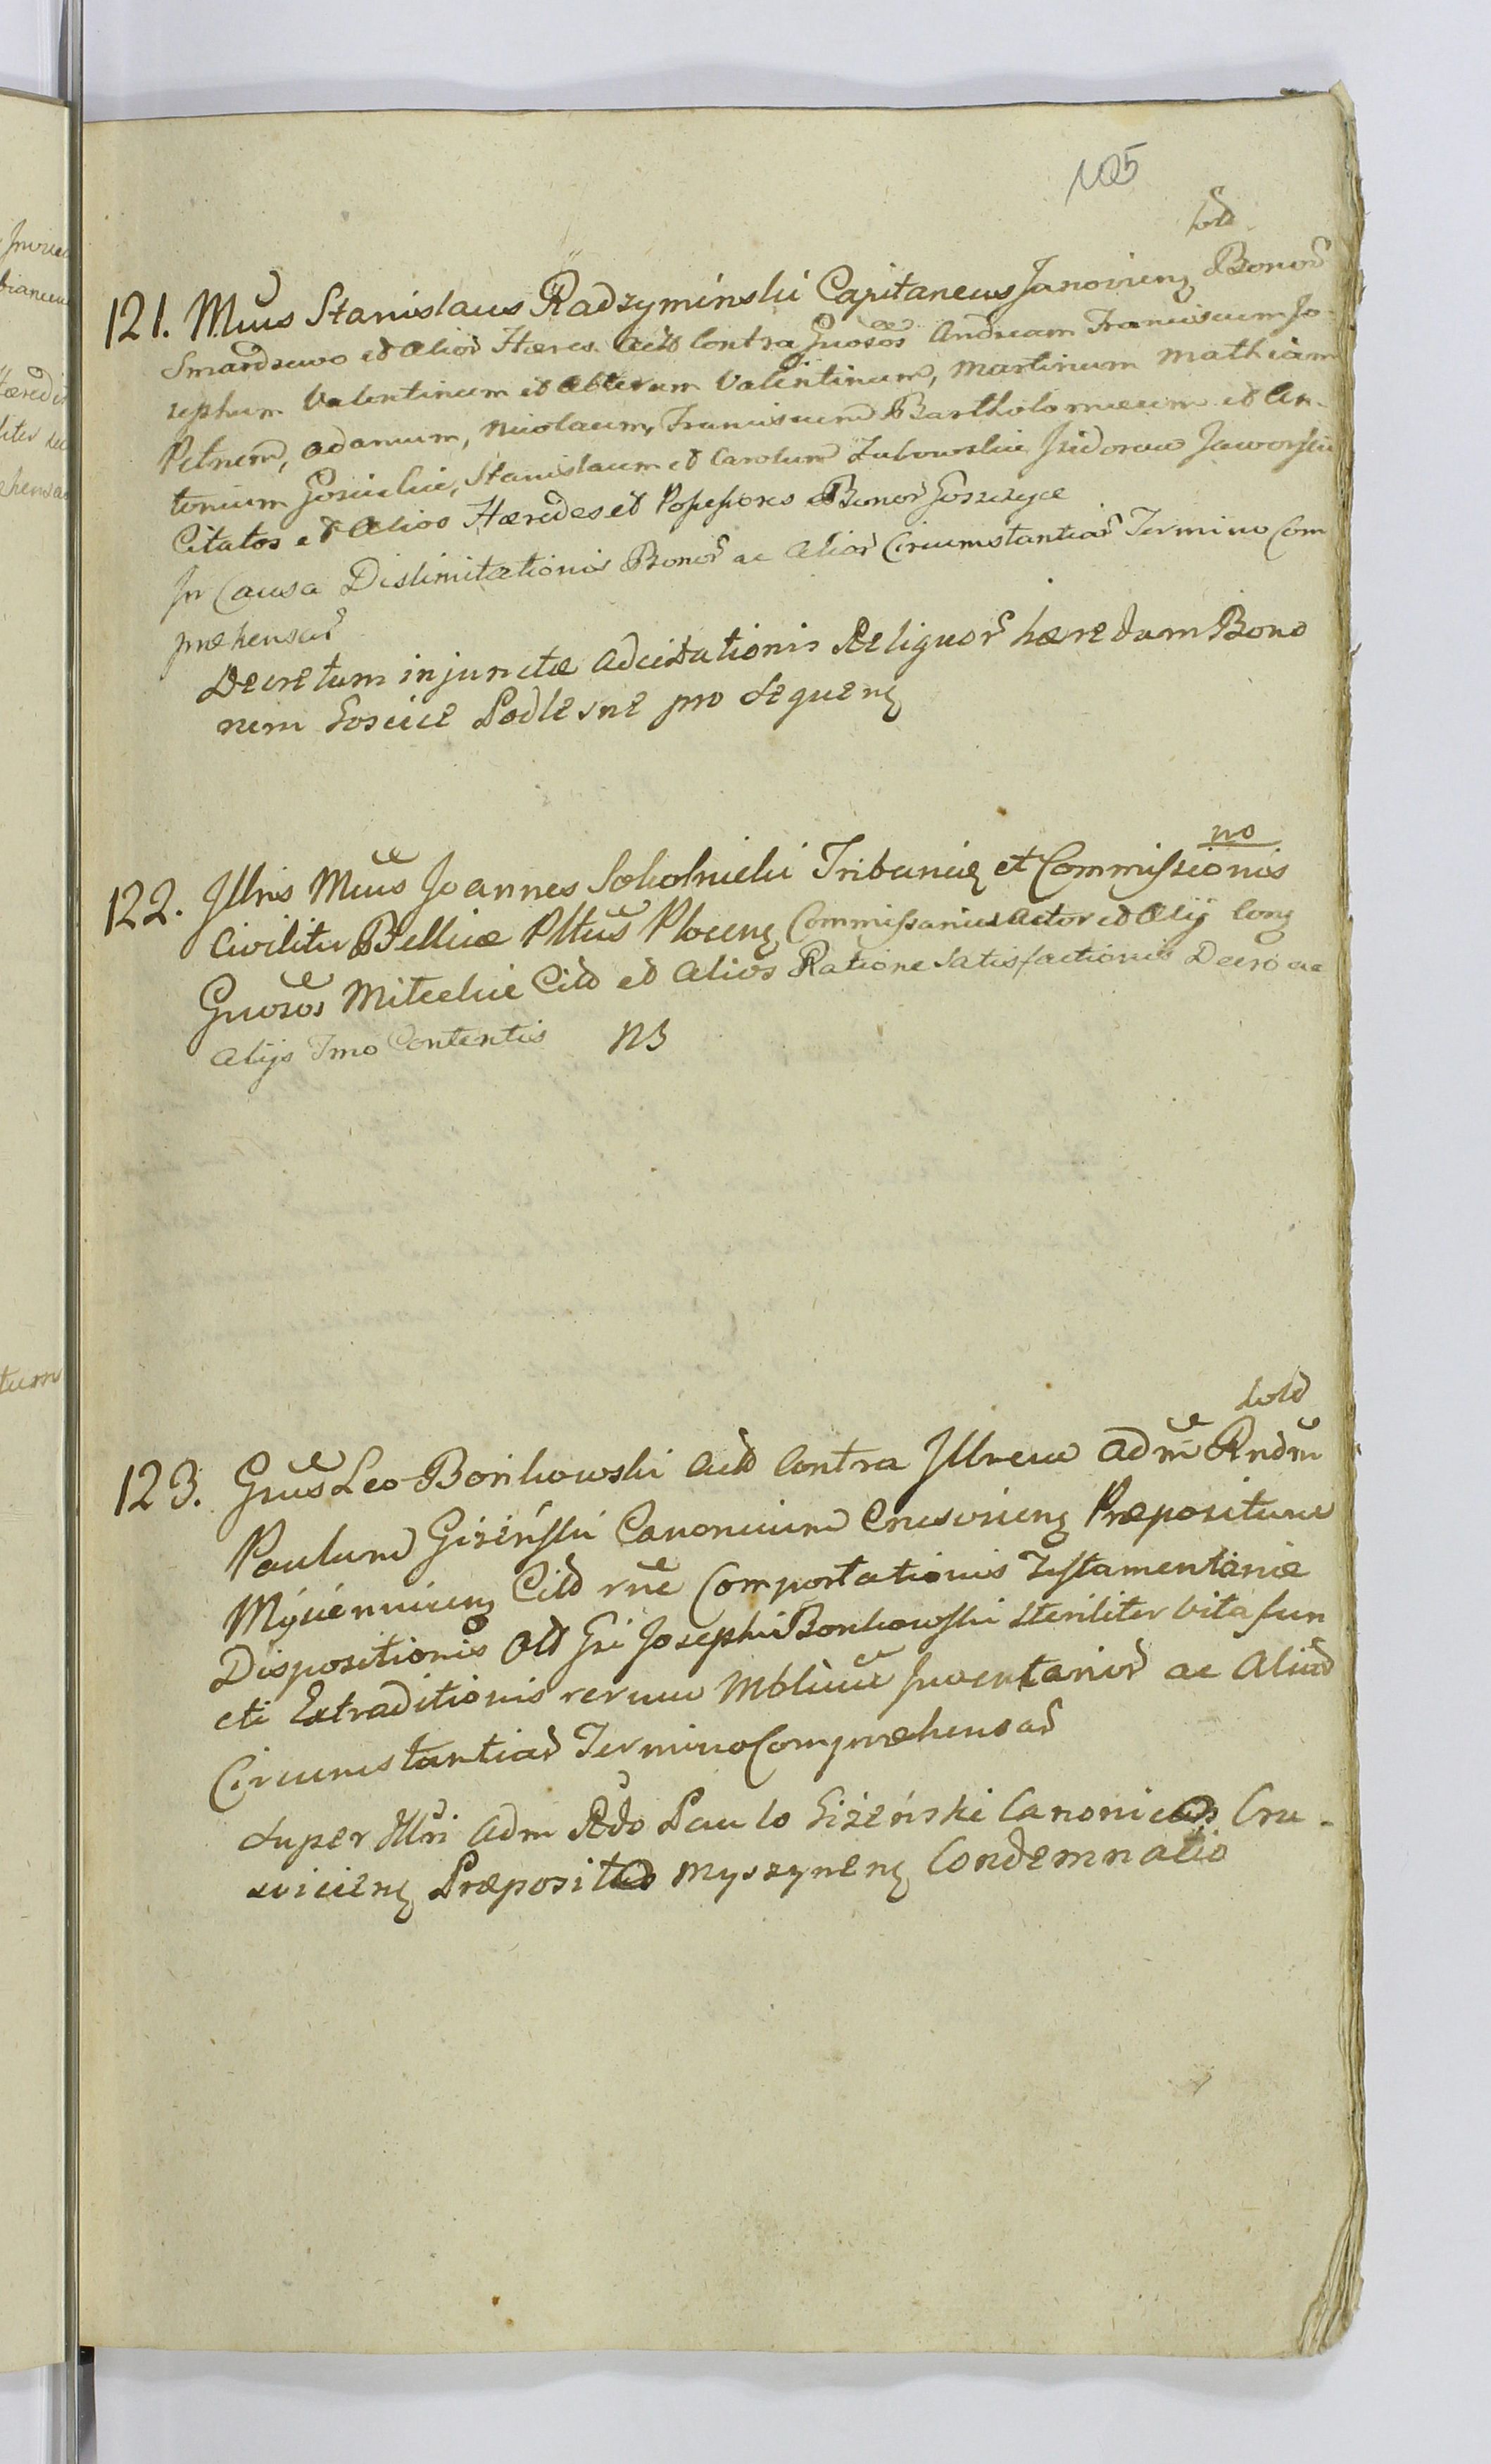 105
sold
121. Mcus Stanislaus Radzyminski Capitaneus Janovieng Bonor
Smardzewo et Alior Hæres Act Contra Gnosos Andream Franciscum Jo-
sephum Valentinum et Alterum Valentinum, Martinum Mathiam
Petrum, Adamum, Nicolaum, Franciscum Bartholomæum et An-
tonium Goscickie, Stanislaum et Carolum Zubowskie Isidorum Jaworski
Citatos et Alios Hæredes et Possessores Bonor Goszczyce
In Causa Dislimitationis Bonor ac Alior Circumstantiar Termino Com
præhensar
Decretum injunctæ adcitationis Reliquor hæredum Bono
rum Goscice Podlesne pro sequeng
no
122. Illris Mcus Joannes Sokolnicki Tribunig et Commissionis
Civiliter Bellicæ Plttus Ploceng Commissarius Actor et Alij Cong
Gnosos Miteckie Citt et Alios Ratione Satisfactionis Decro ac
Alijs Tmo Contentis NB
sold
123. Gsus Leo Bońkowski Actt Contra Illrem Adm Rndm
Paulum Giżeński Canonicum Crusvicieng Præpositum
Cittt rne Comportationis Testamentariæ
Dispositionis Olt Gsi Josephi Bonkowski steriliter vita fun
cti Extraditionis rerum Mblium Inventarior ac Aliar
Circumstantiar Termino Compræhensar
super Illri Adm Rdo Paulo Giżeński Canonico Cru-
svicieng Præposito Myszyneng Condemnatio